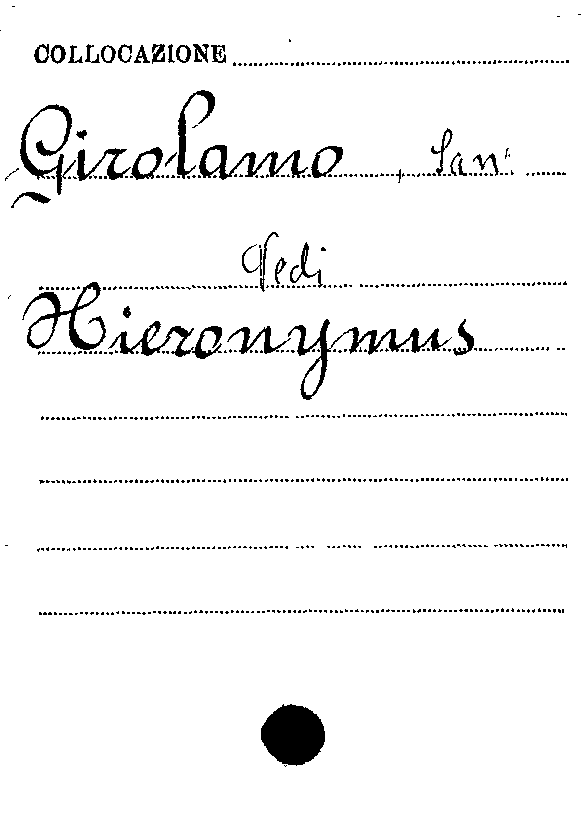 COLLOCAZIONE
Girolamo, San.
Vedi
Hieronymus